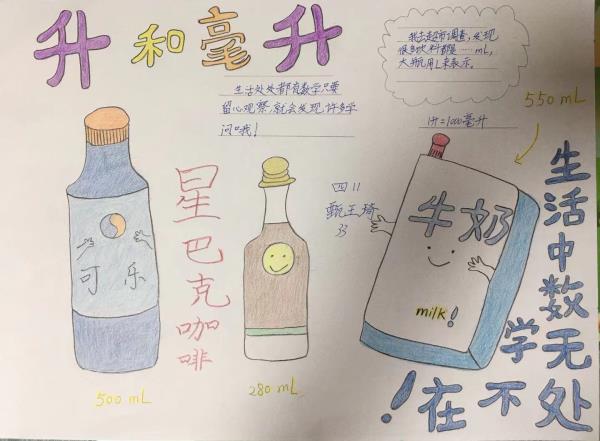 升和毫升
我去超市调查,发现
很多饮料都是……mL,
大瓶用L来表示。
生活处处都有数学只要
留心观察,就会发现许多学
问哦!
1升=1000毫升
550 mL
可乐
500 mL
星巴克咖啡
280 mL
四11
甄王琦
33
牛奶
milk!
生活中数学无处不在!